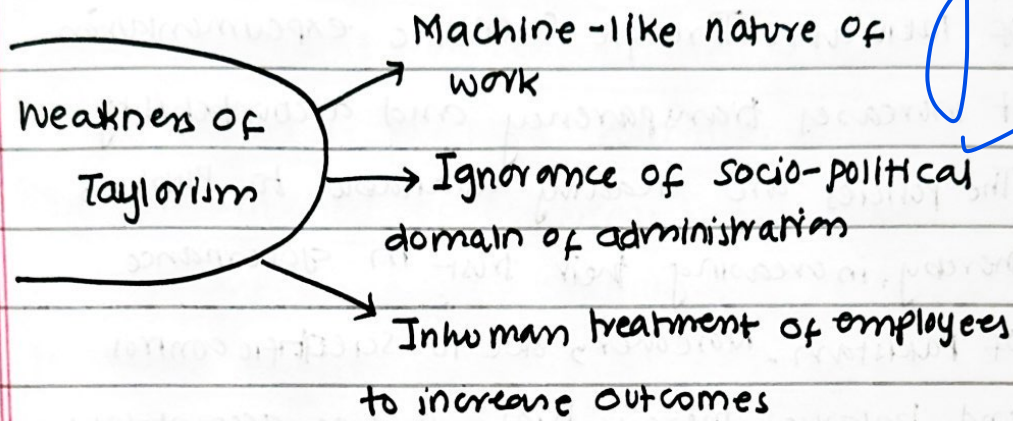 Weakness of
Taylorism
Machine-like nature of
work
Ignorance of socio-political
domain of administration
Inhuman treatment of employees
to increase outcomes